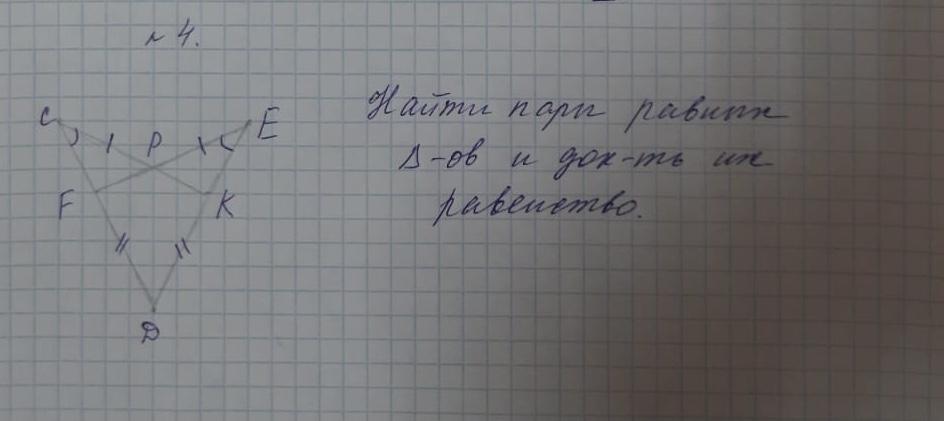 № 4.
C P E
F K
D
Найти пары равных
Δ-ов и док-ть их
равенство.